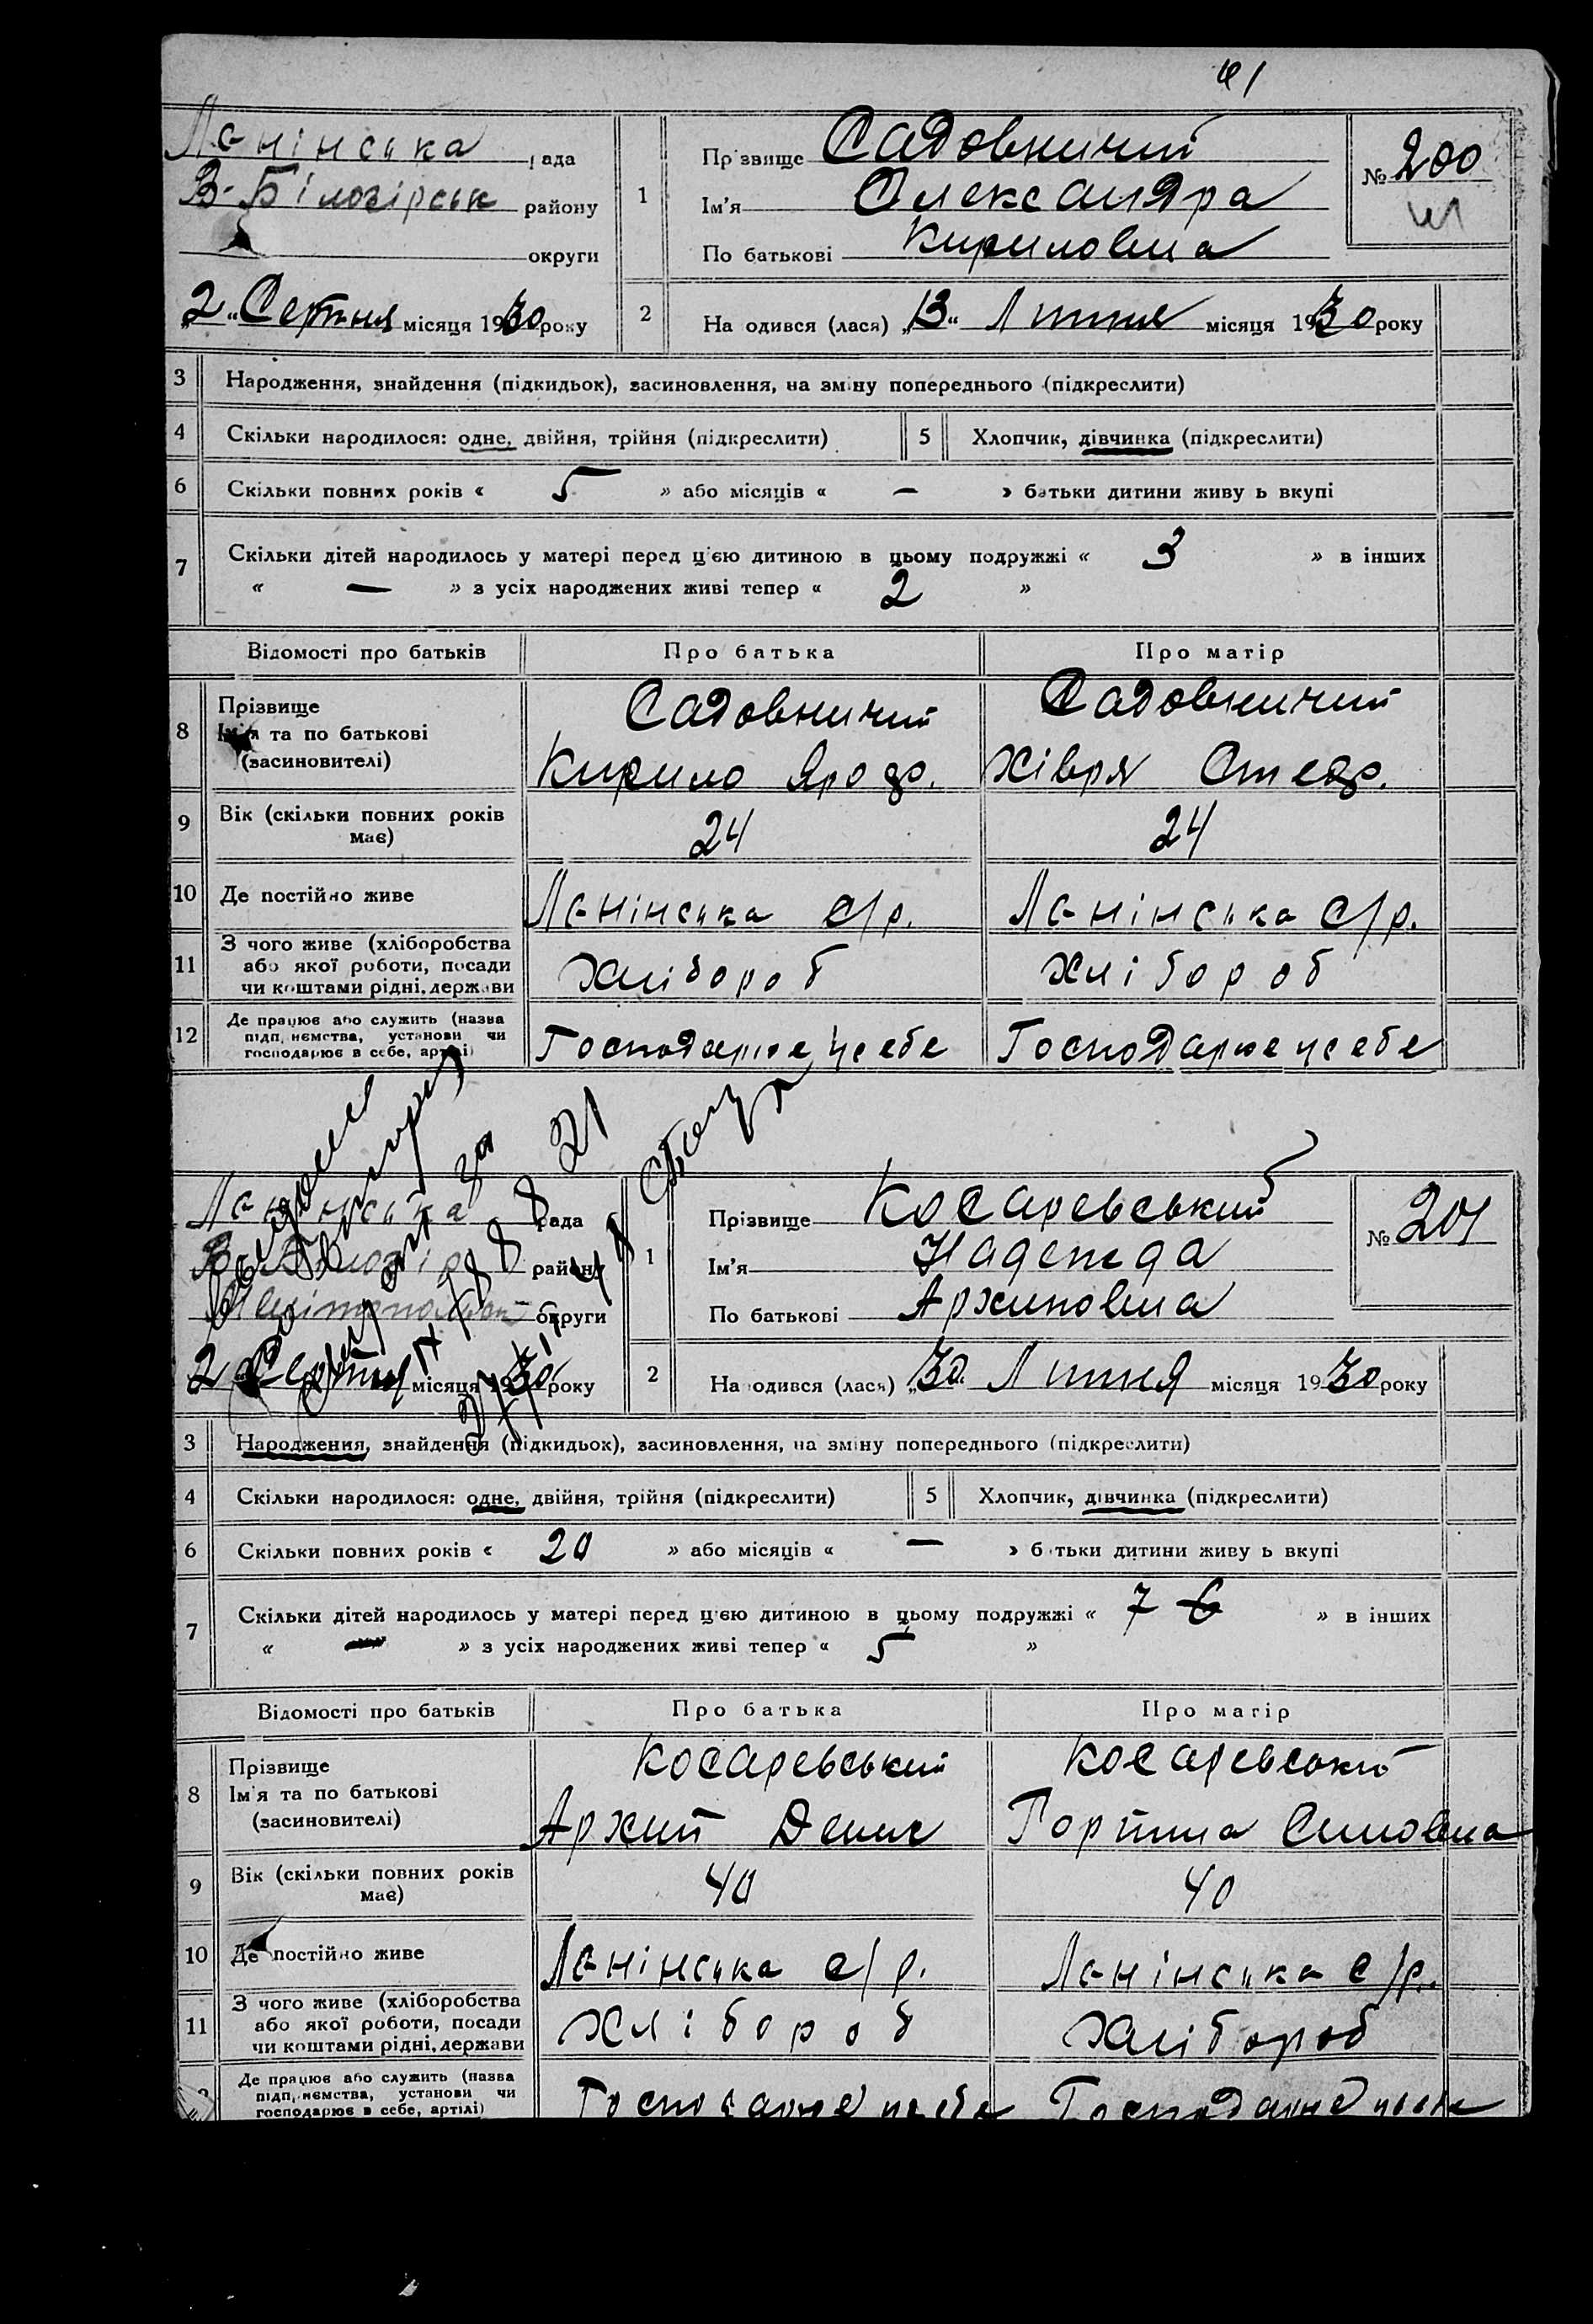 41
Ленінська рада
В-Білогірськ району
округи
"2" Серпня місяця 1930 року
1
Прізвище Садовничий
Ім'я Олександра
По батькові Кириловна
№ 200
2
Народився (лася) "13" Липня місяця 1930 року
3 Народження, знайдення (підкидьок), засиновлення, на зміну попереднього (підкреслити)
4 Скільки народилося: одне, двійня, трійня (підкреслити) 5 Хлопчик, дівчинка (підкреслити)
6 Скільки повних років « 5 » або місяців « — » батьки дитини живуть вкупі
7 Скільки дітей народилось у матері перед цією дитиною в цьому подружжі « 3 » в інших
« — » з усіх народжених живі тепер « 2 »
Відомості про батьків Про батька Про матір
8 Прізвище Ім'я та по батькові (засиновителі)
Садовничий Садовничий
Кирило Хівря
9 Вік (скільки повних років має) 24 24
10 Де постійно живе Ленінська с/р. Ленінська с/р.
11 З чого живе (хліборобства або якої роботи, посади чи коштами рідні, держави хлібороб хлібороб
12 Де працює або служить (назва підп,иємства, установи чи господарює в себе, артілі) Господарює у себе Господарює у себе
Ленінська рада
В-Білогір району
округи
2 Серпня місяця 1930 року
1
Прізвище Косаревський
Ім'я Надежда
По батькові Архиповна
№ 201
2
Народився (лася) "30" Липня місяця 1930 року
3 Народження, знайдення (підкидьок), засиновлення, на зміну попереднього (підкреслити)
4 Скільки народилося: одне, двійня, трійня (підкреслити) 5 Хлопчик, дівчинка (підкреслити)
6 Скільки повних років « 20 » або місяців « — » батьки дитини живуть вкупі
7 Скільки дітей народилось у матері перед цією дитиною в цьому подружжі « 7 6 » в інших
« — » з усіх народжених живі тепер « 5 »
Відомості про батьків Про батька Про матір
8 Прізвище Ім'я та по батькові (засиновителі)
Косаревський Косаревський
Архип Денис
9 Вік (скільки повних років має) 40 40
10 Де постійно живе Ленінська с/р. Ленінська с/р.
11 З чого живе (хліборобства або якої роботи, посади чи коштами рідні, держави хлібороб хлібороб
Де працює або служить (назва підп,иємства, установи чи господарює в себе, артілі) Господарює у себе Господарює у себе